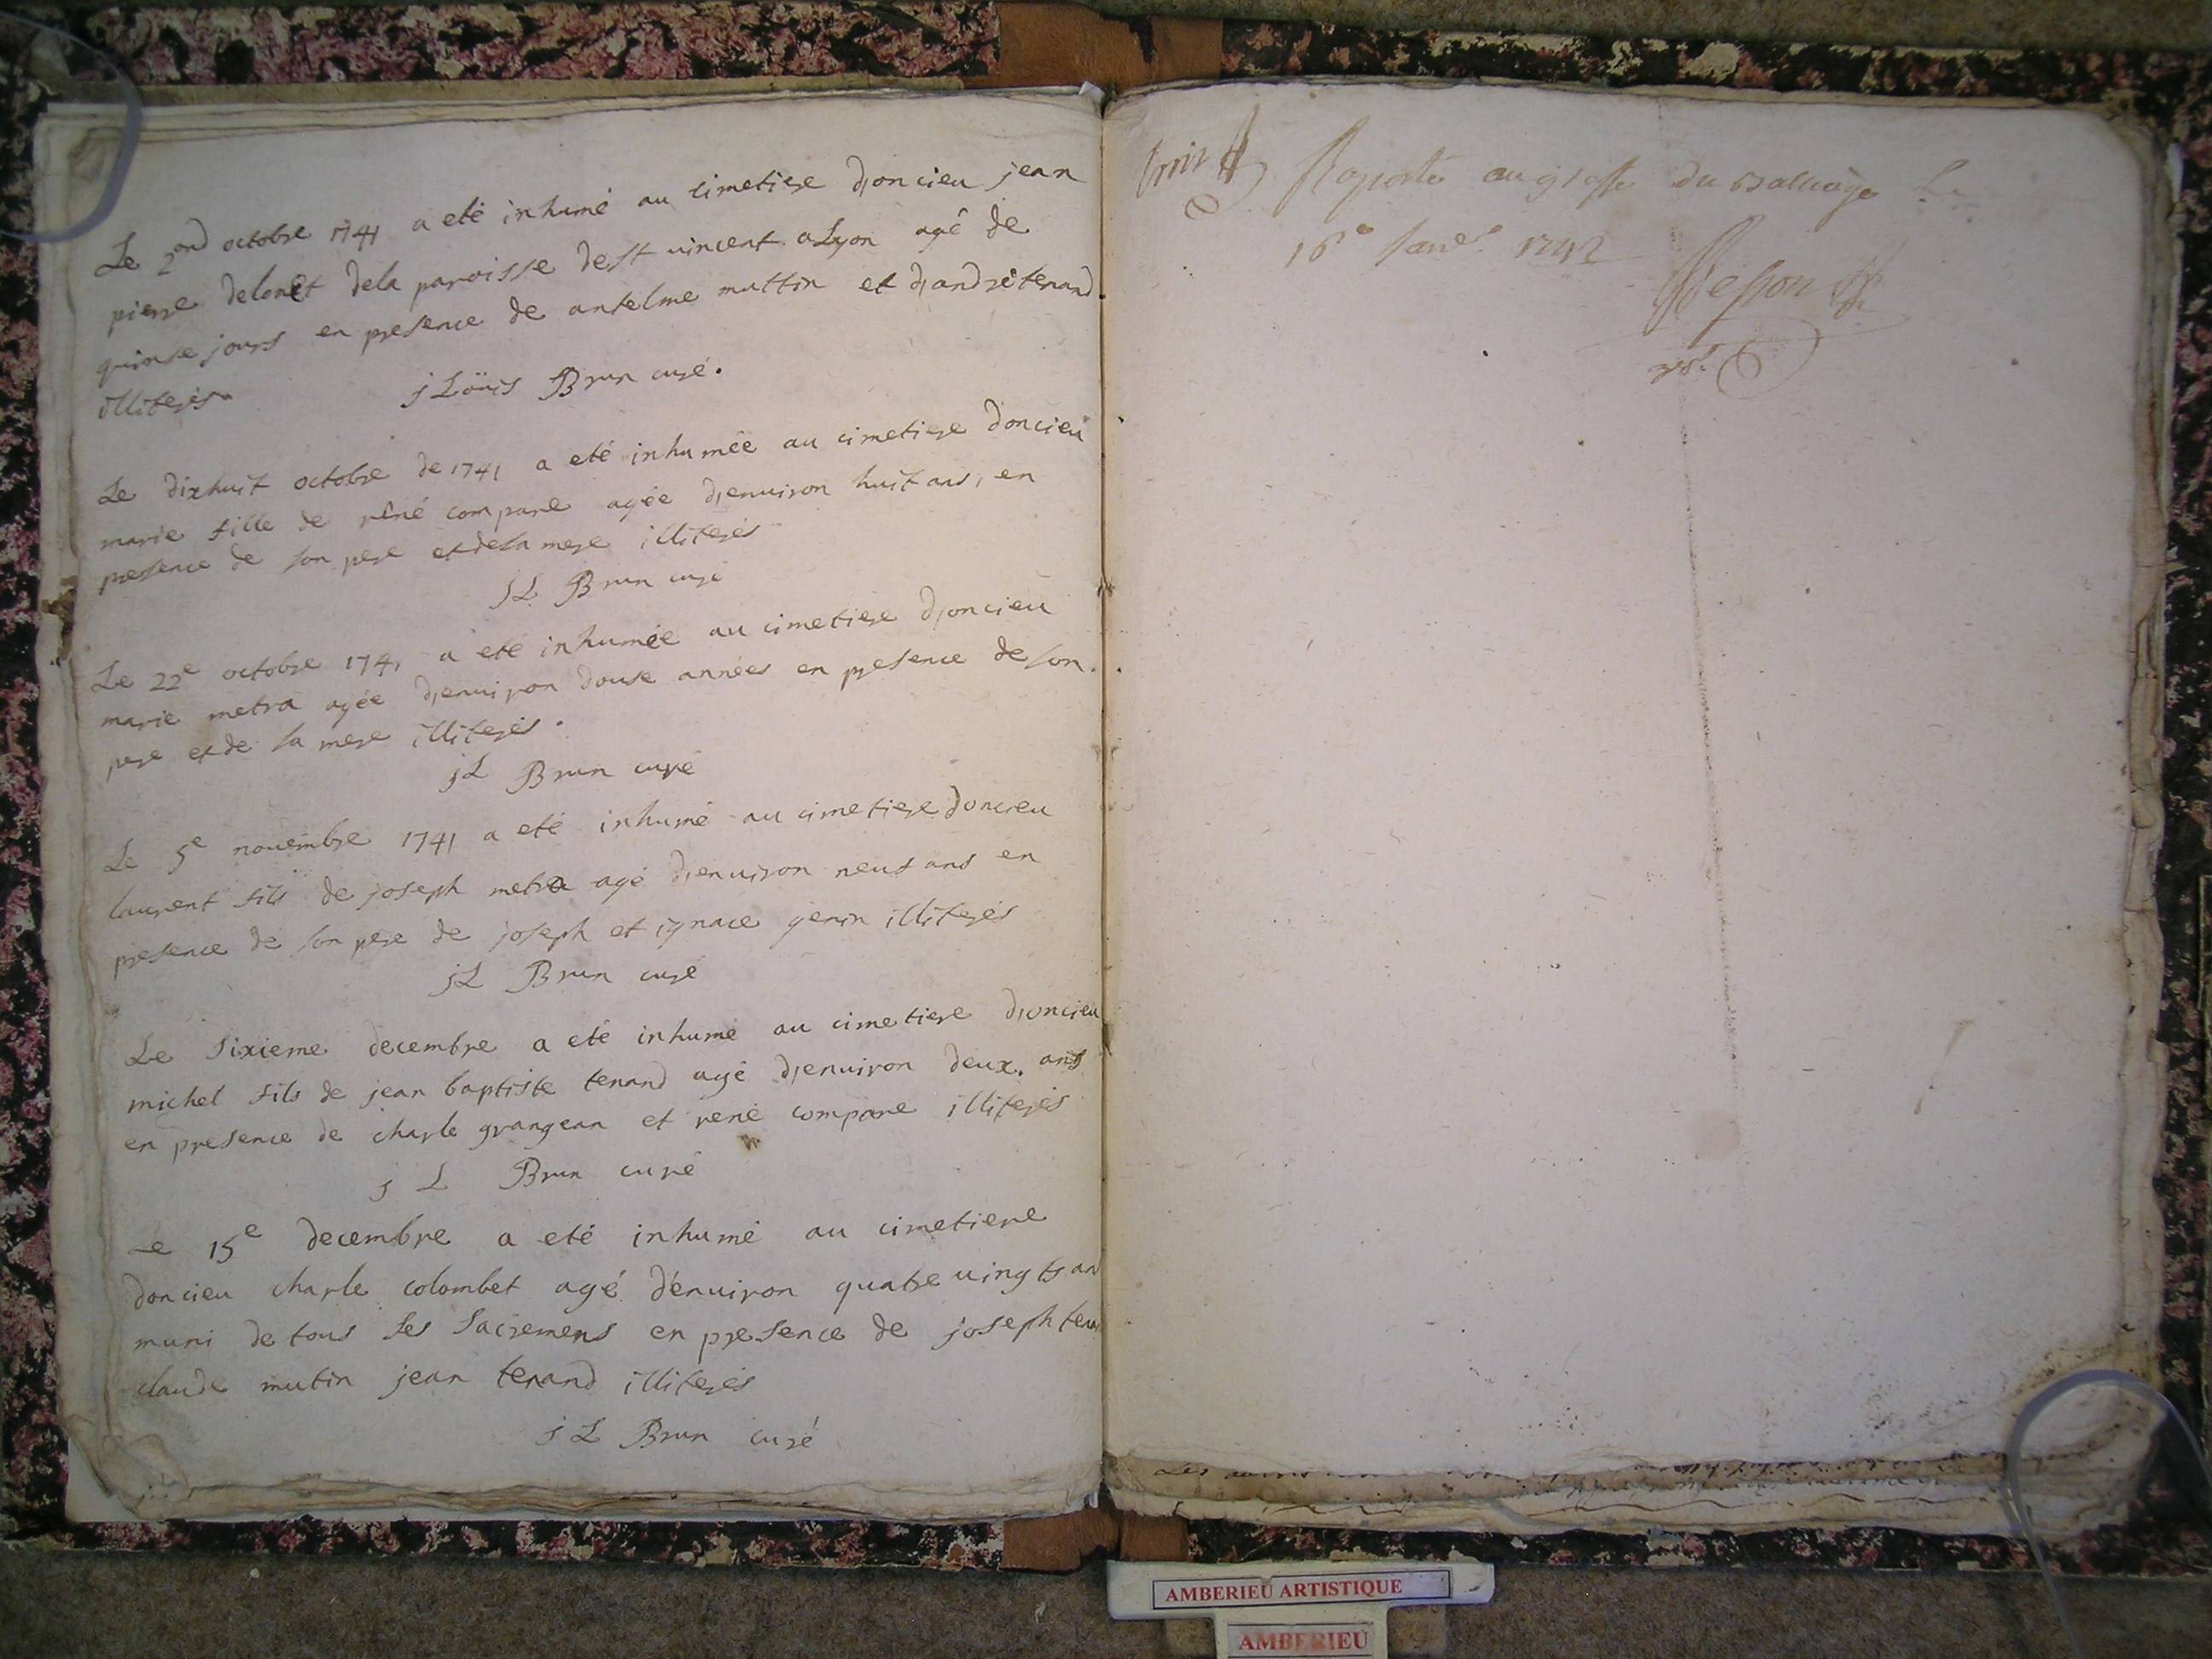 Le 2nd octobre 1741 a eté inhumé au cimetiere d'oncieu jean
pierre delonet dela paroisse de st vincent a Lyon agé de
quinse jours en presence de antelme muttin et d'andré tenand
illiterés. j Loüis Brun curé.
Le dixhuit octobre de 1741 a eté inhumée au cimetiere doncieu
marie fille de réné compane agée d'enuiron huit ans, en
presence de son pere et de sa mere illiterés
j L Brun curé
Le 22e octobre 1741 a eté inhumée au cimetiere d'oncieu
marie metra agée d'enuiron douse années en presence de son
pere et de sa mere illiterés.
j L Brun curé
Le 5e nouembre 1741 a eté inhumé au cimetiere doncieu
laurent fils de joseph metra agé d'enuiron neuf ans en
presence de son pere de joseph et ignace genin illiterés
j L Brun curé
Le Sixieme decembre a eté inhumé au cimetiere d'oncieu
michel fils de jean baptiste tenand agé d'enuiron deux ans
en presence de charle grangean et rené compane illiterés
j L Brun curé
Le 15e decembre a eté inhumé au cimetiere
doncieu charle colombet agé d'enuiron quatre uingts an
muni de tous ses Sacremens en presence de joseph ten
claude mutin jean tenand illiterés
j L Brun curé
Raporté au greffe du Balliage Le
16e Janer 1742
AMBERIEU ARTISTIQUE
AMBERIEU